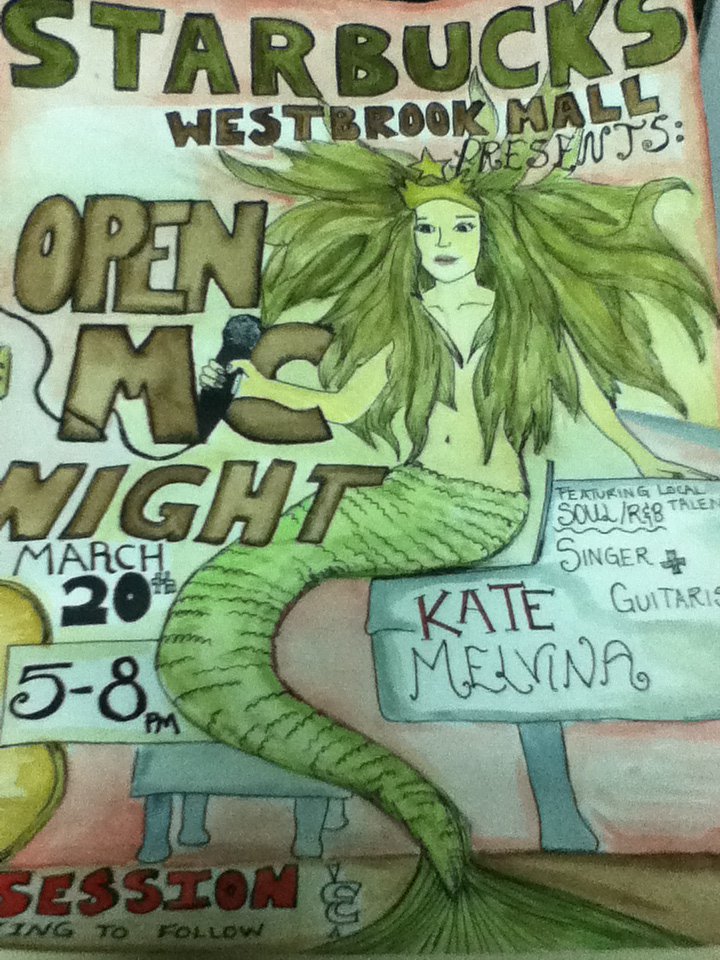 STARBUCKS
WESTBROOK MALL
PRESENTS:
OPEN
MIC
NIGHT
MARCH
20th
5-8PM
FEATURING LOCAL
SOUL/R&B TALEN
SINGER +
GUITARIS
KATE
MELVINA
SESSION
ING TO FOLLOW